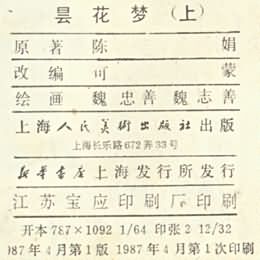 昙花梦(上)
原著 陈娟
改编 可蒙
绘画 魏忠善 魏志善
上海人民美術出版社出版
上海长乐路672弄33号
新华書店上海发行所发行
江苏宝应印刷厂印刷
开本787×1092 1/64 印张2 12/32
987年4月第1版 1987年4月第1次印刷